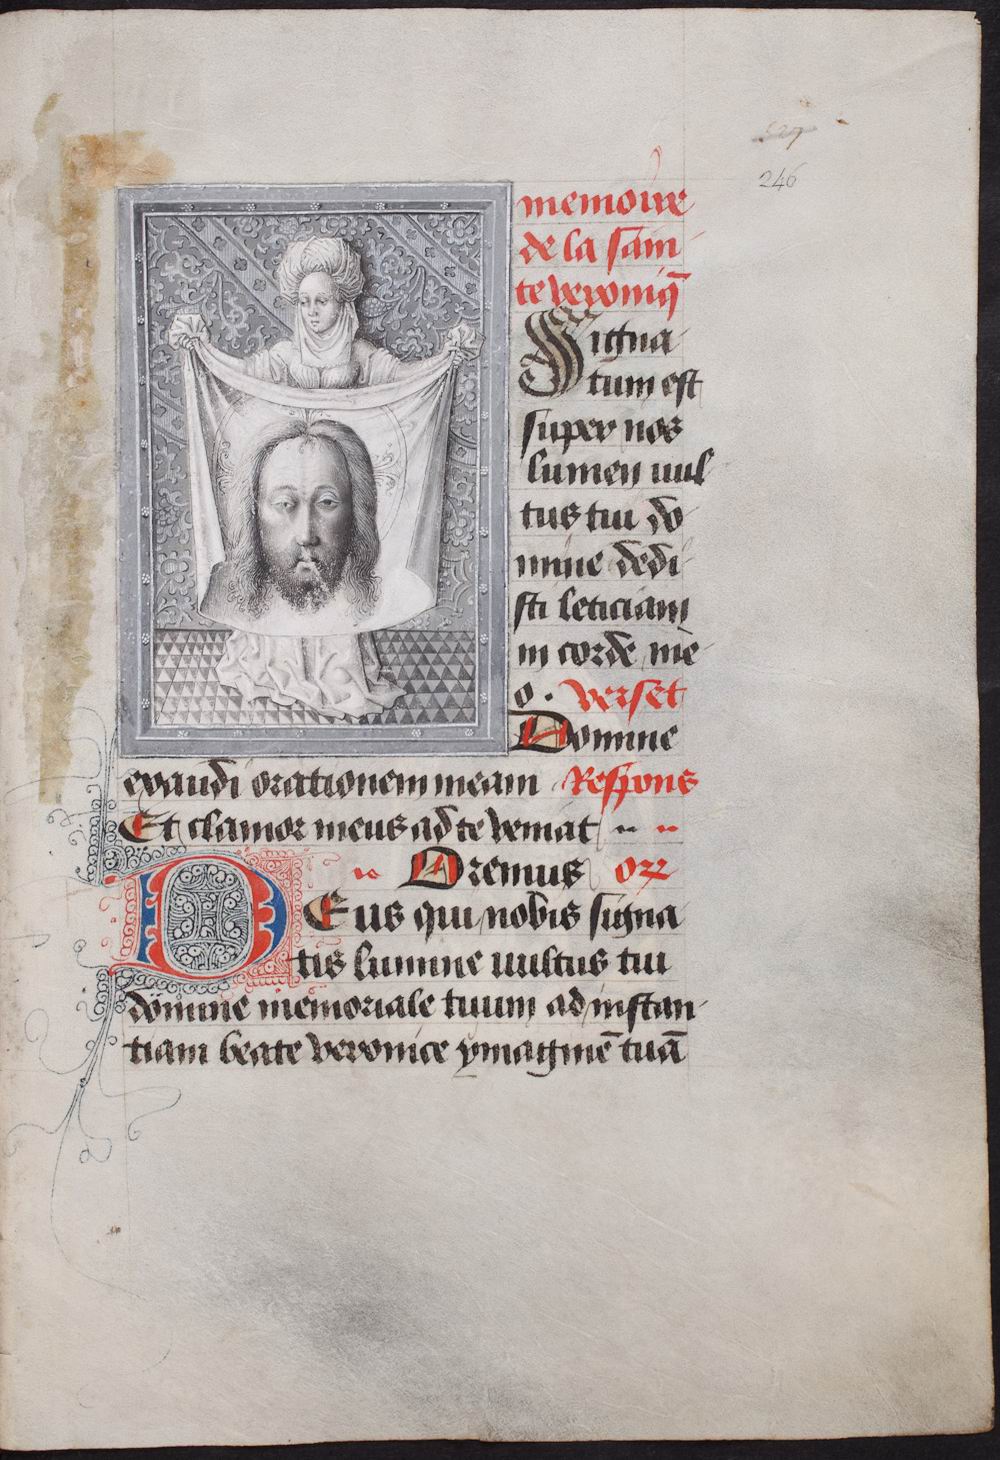 246
memoire
de la sain
te veroniq̄
Signa
tum est
super nos
lumen uul
tus tui do
mine dedi
sti leticiam
in corde me
o. verset
Domine
exaudi orationem meam Respons
Et clamor meus ad te veniat
Oremus or
Deus qui nobis signa
tis lumine uultus tui
domine memoriale tuum ad instan
tiam beate veronice ymaginē tuā